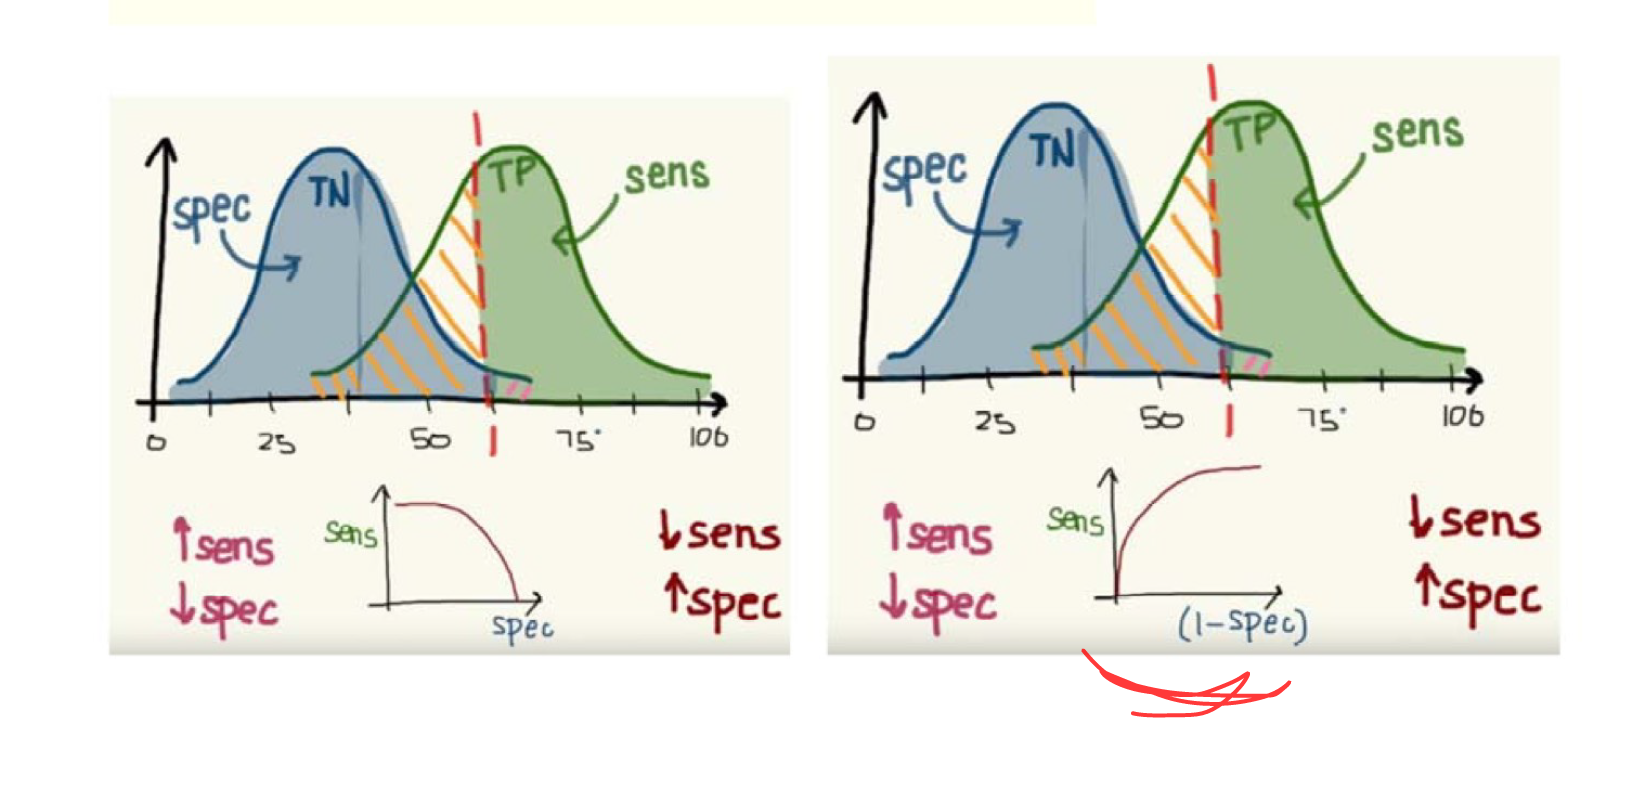 TN
TP
sens
spec
0 25 50 75 100
↑sens
↓spec
sens
spec
↓sens
↑spec
TN
TP
sens
spec
0 25 50 75 100
↑sens
↓spec
sens
(1-spec)
↓sens
↑spec